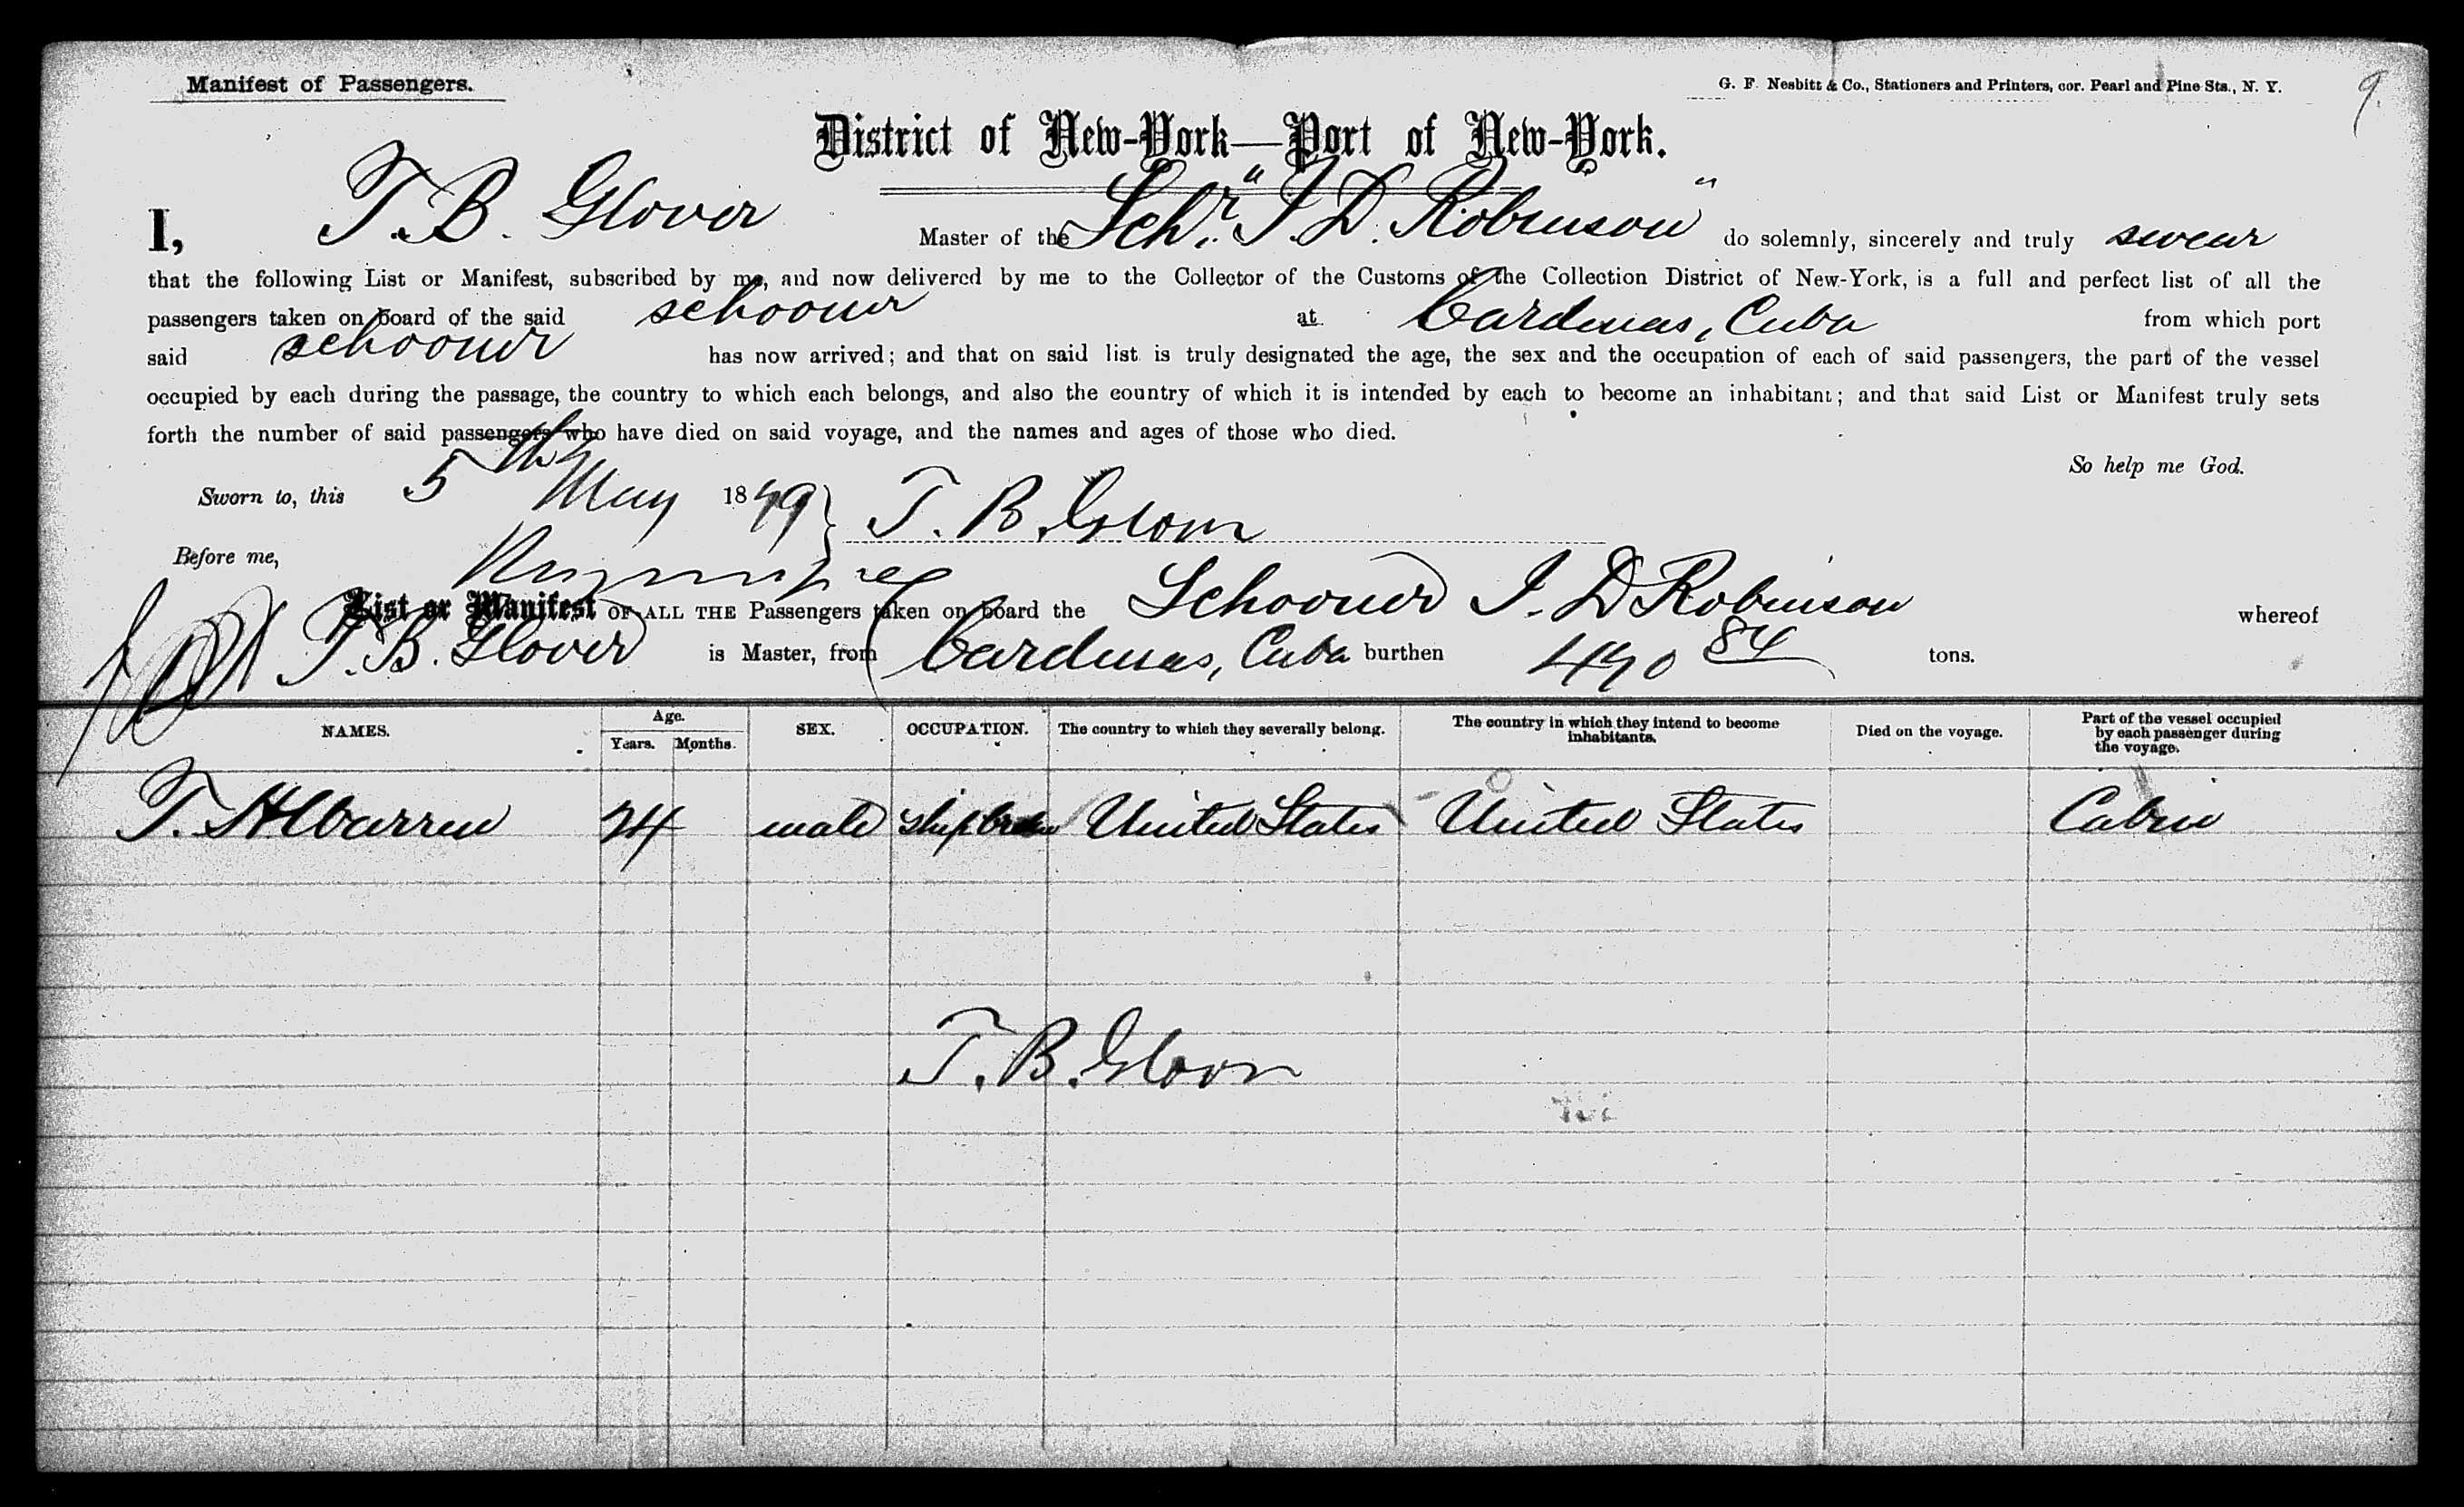 Manifest of Passengers.
G. F. Nesbitt & Co., Stationers and Printers, cor. Pearl and Pine Sts., N. Y.
9.
District of New-York—Port of New-York.
I, T. B. Glover Master of the Schr. "J. D. Robinson" do solemnly, sincerely and truly swear
that the following List or Manifest, subscribed by me, and now delivered by me to the Collector of the Customs of the Collection District of New-York, is a full and perfect list of all the
passengers taken on board of the said schooner at Cardenas, Cuba from which port
said schooner has now arrived; and that on said list is truly designated the age, the sex and the occupation of each of said passengers, the part of the vessel
occupied by each during the passage, the country to which each belongs, and also the country of which it is intended by each to become an inhabitant; and that said List or Manifest truly sets
forth the number of said passengers who have died on said voyage, and the names and ages of those who died.
So help me God.
Sworn to, this 5th May 1879 } T. B. Glover
Before me,
List or Manifest OF ALL THE Passengers taken on board the Schooner J. D Robinson whereof
T. B. Glover is Master, from Cardenas, Cuba burthen 490 84 tons.
NAMES. Age. Years. Months. SEX. OCCUPATION. The country to which they severally belong. The country in which they intend to become inhabitants. Died on the voyage. Part of the vessel occupied by each passenger during the voyage.
T. 24 male United States United States Cabin
T. B. Glover